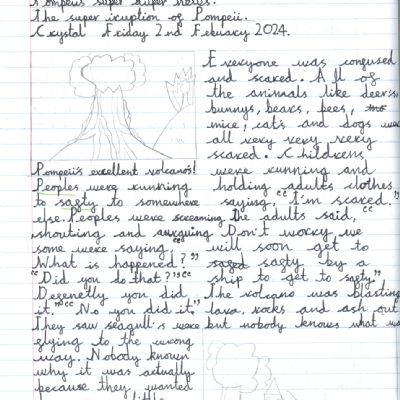 super duper news.
The super iruption of Pompeii.
Crystal Friday 2nd Febuary 2024.
Pompeii's exellent volcano's!
Peoples were running
to safty to somewhere
else. Peoples were screaming
shouting and aurguing
some were saying, "
What is happened?"
"Did you do that?" "
you did
it." "No you did it,"
They saw seagull's were
flying to the wrong
way. Nobody known
why it was actually
because they wanted
little
Everyone was confused
and scared. All of
the animals like deers,
bunnys, bears, bees,
mice, cats and dogs were
all very very very
scared. Childrens
were running and
holding adults clothes
saying, "I'm scared."
The adults said, "
Don't worry we
will soon get to
safty by a
ship to get to safty."
The volcano was blasting
lava, rocks and ash out
but nobody knows what